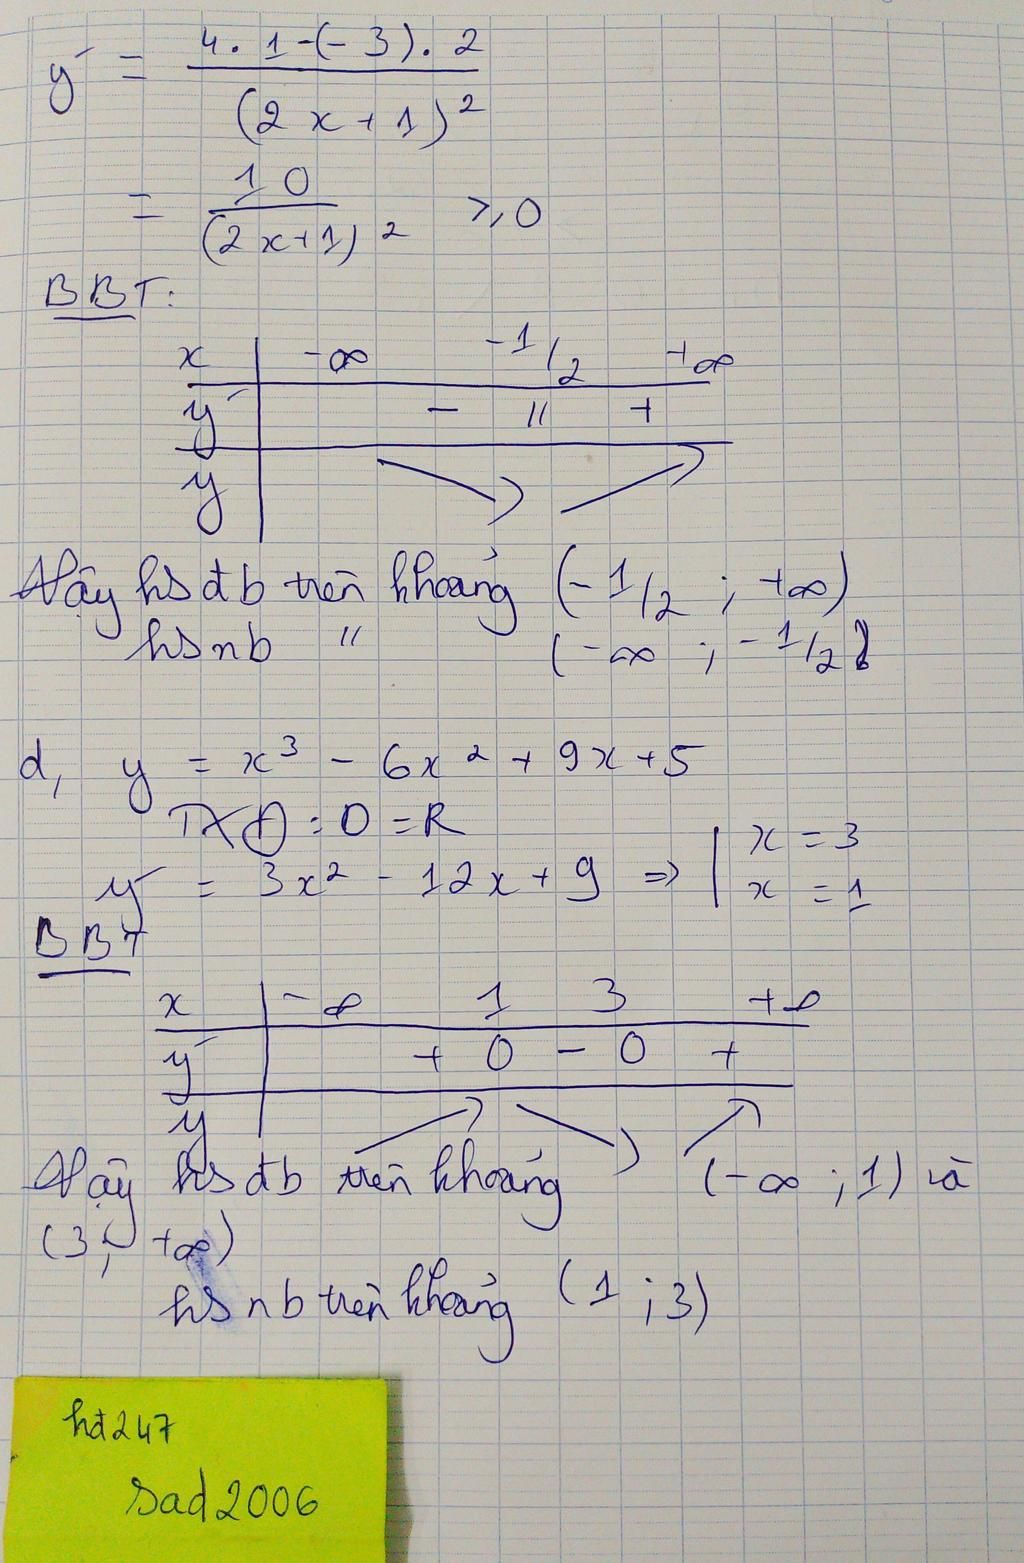 y' = 4. 1-(-3). 2
(2x+1)²
= 10 / (2x+1)² ⩾ 0
BBT:
x -∞ -1/2 +∞
y' - || +
y
Vậy hs đb trên khoảng (-1/2 ; +∞)
hs nb " (-∞ ; -1/2)
d, y = x³ - 6x² + 9x + 5
TXĐ : D = R
y' = 3x² - 12x + 9 => | x = 3
x = 1
BBT
x -∞ 1 3 +∞
y' + 0 - 0 +
y
Vậy hs đb trên khoảng (-∞ ; 1) và
(3 ; +∞)
hs nb trên khoảng (1 ; 3)
hđ247
sad2006